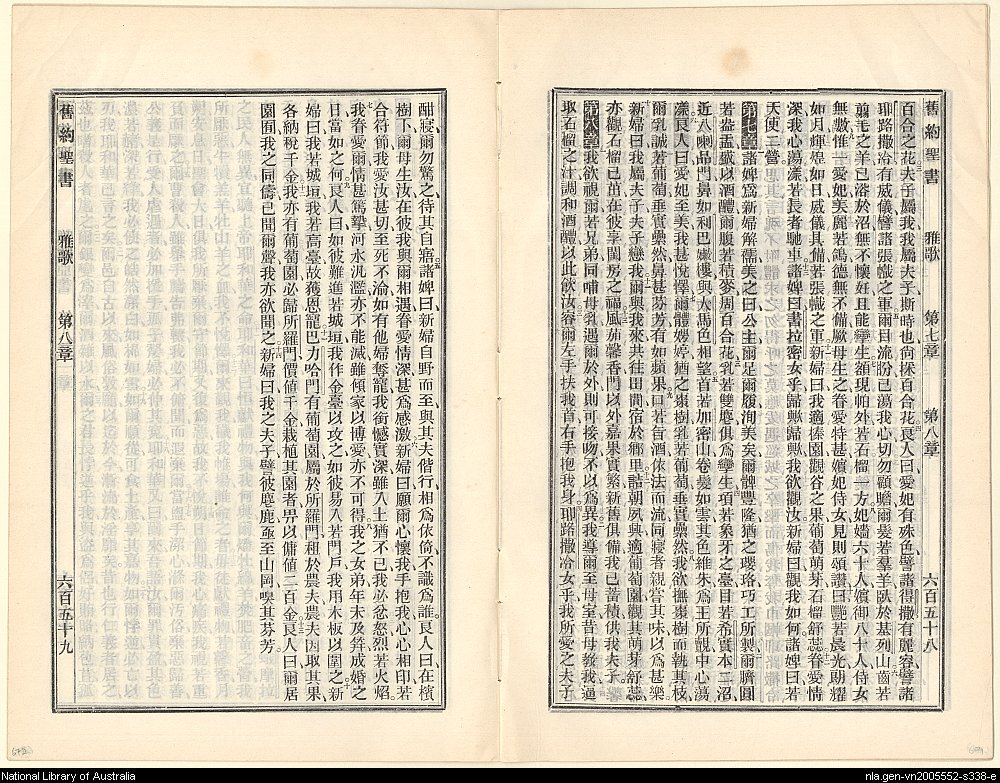 舊約聖書 雅歌 第七章 第八章 六百五十八
百合之花夫子屬我我屬夫子斯時也尚採百合花良人曰愛妃有殊色譬諸得撒有麗容譬諸
耶路撒冷有威儀譬諸張幟之軍爾目流盼已蕩我心切勿顧瞻爾髮若羣羊臥於基列山齒若
翦毛之羊已浴於沼無不懷妊且能孿生額現帕外若石榴一方妃嬙六十人嬪御八十人侍女
無數惟一愛妃美麗若鴿德無不備厥母生之眷愛特甚嬪妃侍女見則頌讚曰豔若晨光助耀
如月輝煌如日威儀其備若張幟之軍新婦曰我適園觀谷之果葡萄萌芽石榴舒蕊眷愛情
深我心蕩漾若長者馳車諸婢曰書拉密女乎歸歟歸歟我欲觀汝新婦曰觀我如何諸婢曰若
天使二營
第七章諸婢爲新婦解襦美之曰公主爾足爾履洵美矣爾髀豐隆猶之瓔珞巧工所製爾臍圓
若盎盂盛以酒醴爾腹若積麥周百合花乳若雙麀俱爲孿生項若象牙之臺目若希實本二沼
近八喇品門鼻如利巴嫩樓與大馬色相望首若加密山卷髮如雲其色維朱爲王所覩中心蕩
漾良人曰愛妃至美我甚悅懌爾體娉婷猶之棗樹乳若葡萄垂實纍然我欲撫棗樹而執其枝
爾乳誠若葡萄垂實纍然鼻甚芬芳有如蘋果口若旨酒依法而流同寢者親嘗其味以爲甚樂
新婦曰我屬夫子夫子戀我爾與我來共往田間宿於鄉里詰朝夙興適葡萄園觀其萌芽舒蕊
亦觀石榴已茁在彼享閨房之福風茄馨香門以外嘉果實繁新舊俱備我已蓄積供我夫子
第八章我欲視爾若兄弟同哺母乳遇爾於外則可接吻不以爲異我導爾至母室昔母教我過
取石榴之汁調和酒醴以此飲汝容爾左手扶我首右手抱我身耶路撒冷女乎我所愛之夫子
酣寢爾勿驚之待其自寤諸婢曰新婦自野而至與其夫偕行相爲依倚不識爲誰良人曰在檳
樹下爾母生汝在彼我與爾相遇眷愛情深甚爲感激新婦曰願爾心懷我手抱我心心相印若
合符節我愛汝甚切至死不渝如有他婦奪寵我銜憾實深雖入土猶不已我必忿怒烈若火焰
我眷愛爾情甚篤摯河水汎濫亦不能滅雖傾家以博愛亦不可得我之女弟年未及笄成婚之
日當如之何良人曰如彼難進若城垣我作金臺以攻之如彼易入若門戶我用木板以圍之新
婦曰我若城垣我若高臺故獲恩寵巴力哈門有葡萄園屬於所羅門租於農夫農夫因取其果
各納稅千金我亦有葡萄園必歸所羅門價值千金栽植其園者畀以傭值二百金良人曰爾居
園囿我之同儔已聞爾聲我亦欲聞之新婦曰我之夫子譬彼麀鹿亟至山岡嗅其芬芳
舊約聖書 雅歌 第八章 六百五十九
National Library of Australia
nla.gen-vn2005552-s338-e